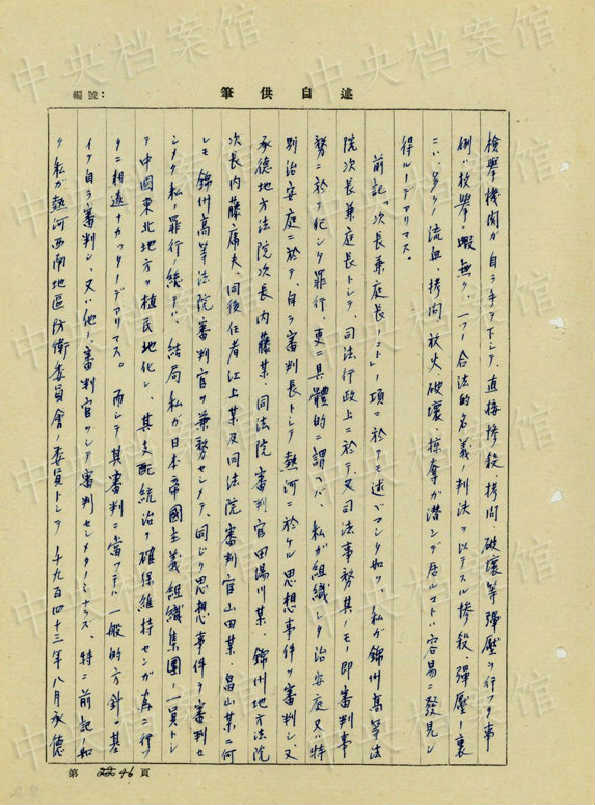 中央档案馆
編號:
筆供自述
檢擧機関ガ自ラ手ヲ下シテ、直接慘殺、拷問、破壞等彈壓ヲ行フタ事
例ハ枚擧ニ暇無ク、一ツノ合法的名義ノ判決ヲ以テスル慘殺、彈壓ノ裏
ニハ、多クノ流血、拷問、放火破壞、掠奪ガ潜ンデ居ルコトハ容易ニ發見シ
得ルノデアリマス。
前記「次長兼庭長ノコト」ノ項ニ於テモ述ベマシタ如ク、私ガ錦州高等法
院次長兼庭長トシテ、司法行政上ニ於テ、又司法事務其ノモノ即審判事
務ニ於テ犯シタ罪行ハ、更ニ具體的ニ謂ヘバ、私ガ組織シタ治安庭又ハ特
別治安庭ニ於テ、自ラ審判長トシテ熱河ニ於ケル思想事件ヲ審判シ、又
承德地方法院次長内藤某、同法院審判官田陽川某、錦州地方法院
次長内藤庸夫、同後任者江上某及同法院審判官山田某、畠山某ニ何
レモ錦州高等法院審判官ヲ兼務セシメテ、同じク思想事件ヲ審判セ
シメタ私ノ罪行ノ総テハ、結局私ガ日本帝國主義組織集團ノ一員トシ
テ中国東北地方ヲ植民地化シ、其支配統治ヲ確保維持センガ為ニ行フ
タニ相違ナカッタノデアリマス。而シテ其審判ニ當ッテハ一般的方針ニ基
イテ自ラ審判シ、又ハ他ノ審判官ヲシテ審判セシメタノミナラズ、特ニ前記ノ如
ク私ガ熱河西南地區防衛委員會ノ委員トシテ千九百四十三年八月承德
第 46 頁